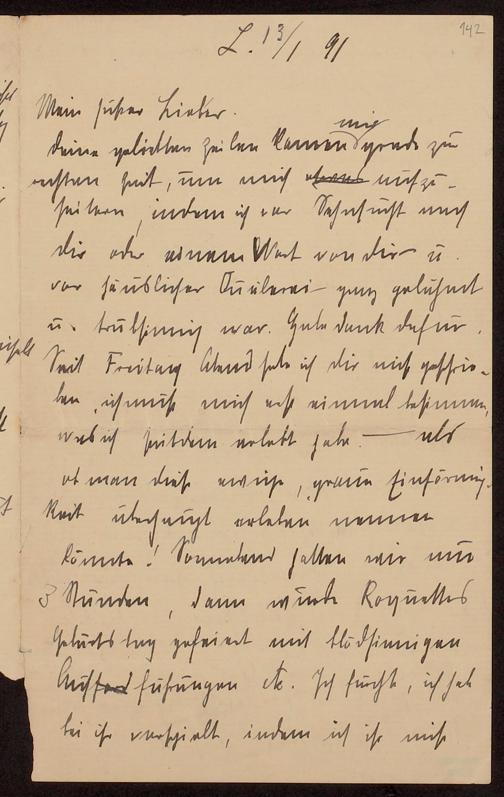 142
L. 13/1 91
Mein süßer Liebster.
Deine geliebten Zeilen kamen mir grade zu
rechten Zeit, um mich aufzu-
heitern, indem ich vor Sehnsucht nach
dir oder einem Wort von dir u.
vor häuslicher Quälerei ganz gelähmt
u. trübsinnig war. Habe dank dafür.
Seit Freitag Abend habe ich dir nicht geschrie-
ben, ich muß mich erst einmal besinnen,
was ich seitdem erlebt habe. — als
ob man diese ewige, graue Einförmig-
keit überhaupt erleben nennen
könnte! Sonnabend hatten wir nur
3 Stunden, dann wurde Roquettes
Geburtstag gefeiert mit blödsinnigen
Aufführungen etc. Ich fürchte, ich hab
bei ihr verspielt, indem ich ihr nicht